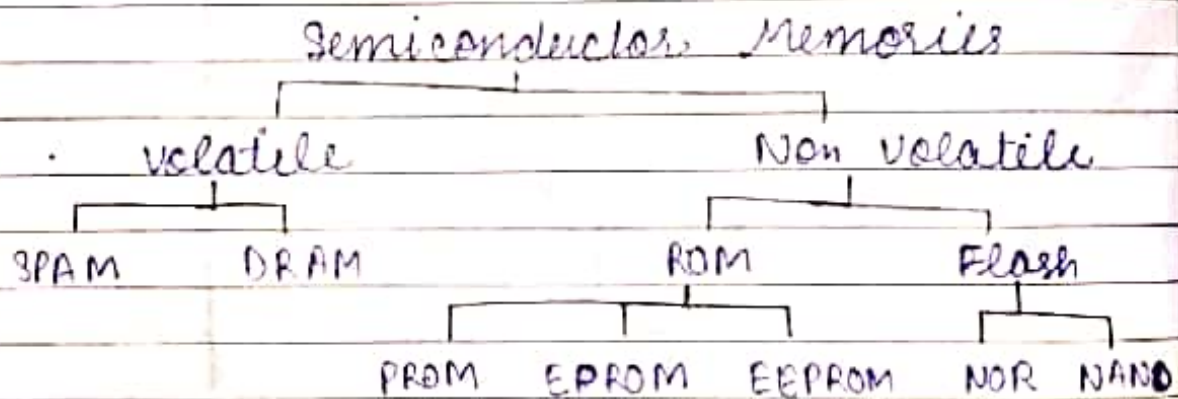 Semiconductor Memories
volatile Non Volatile
SRAM DRAM ROM Flash
PROM EPROM EEPROM NOR NAND